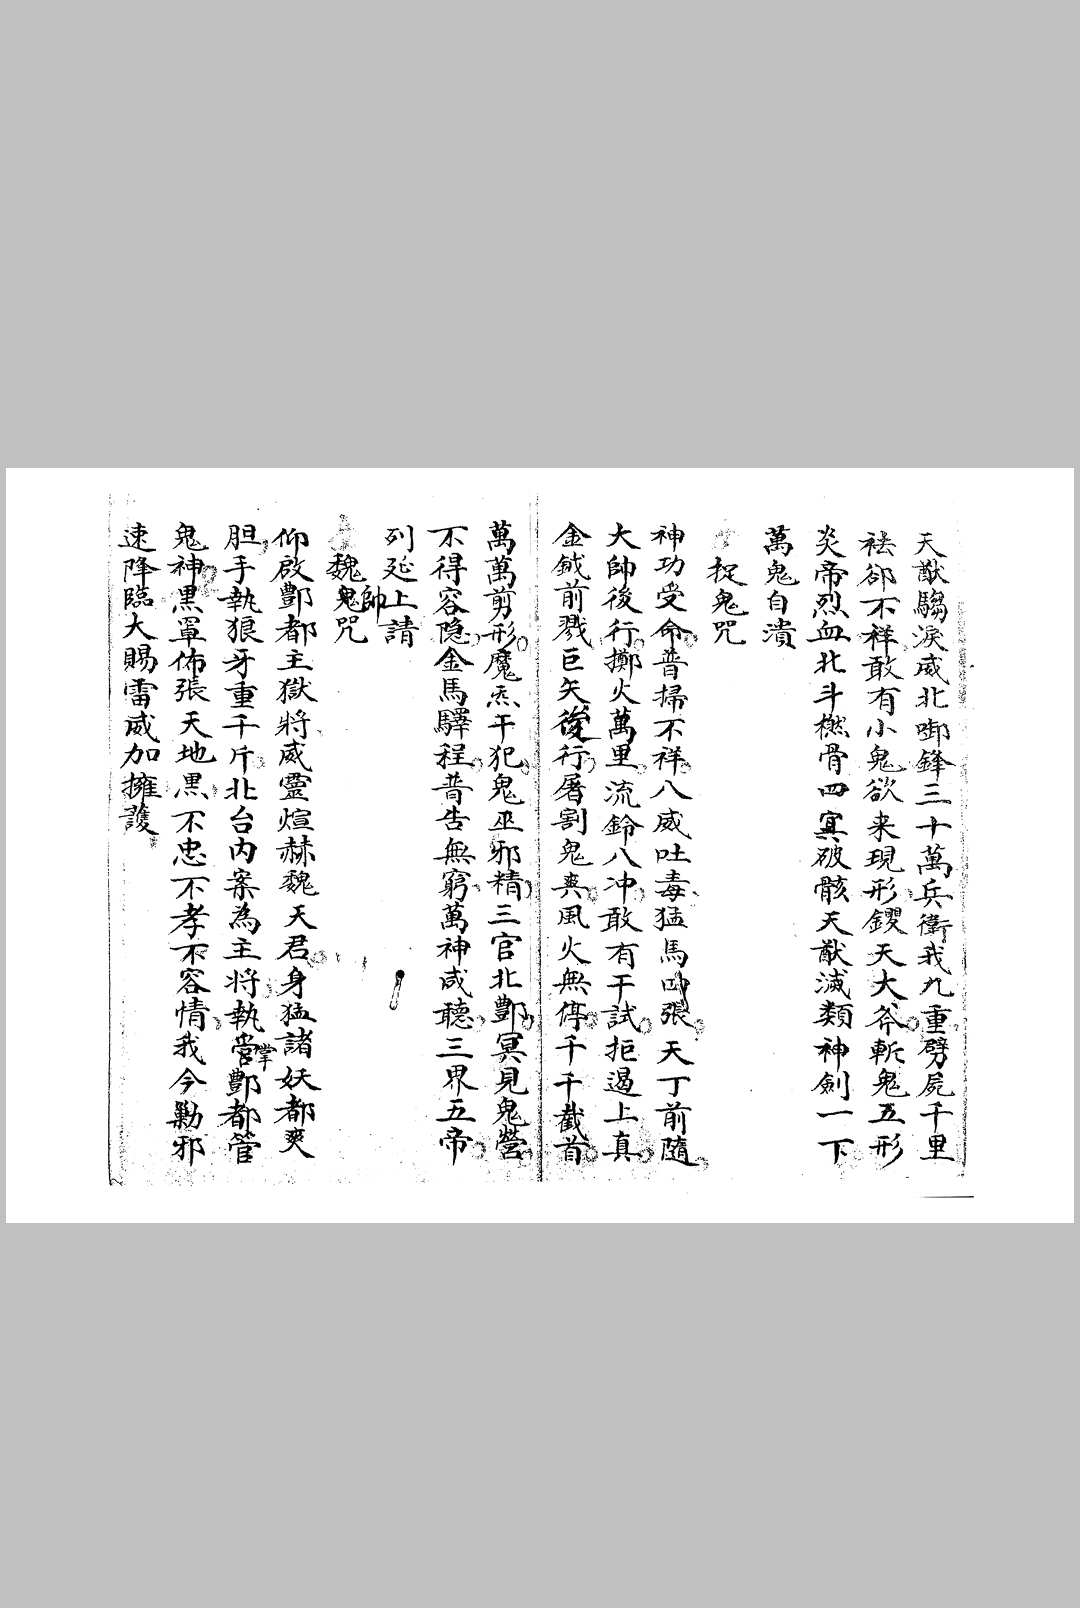 天猷騶淚威北啣鋒三十萬兵衛我九重劈屍千里
袪郤不祥敢有小鬼欲来現形钁天大斧斬鬼五形
炎帝烈血北斗橪骨四冥破骸天猷滅類神劍一下
萬鬼自潰
捉鬼咒
神功受命普掃不祥八威吐毒猛馬四張天丁前隨
大帥後行擲火萬里流鈴八冲敢有干試拒遏上真
金鉞前戮巨矢後行屠割鬼爽風火無停千千截首
萬萬剪形魔炁干犯鬼巫邪精三官北酆冥見鬼營
不得容隐金馬驛程普告無窮萬神咸聽三界五帝
列延上請
魏鬼帥咒
仰啟酆都主獄將威靈煊赫魏天君身猛諸妖都爽
胆手執狼牙重千斤北台內案為主將執掌酆都管
鬼神黑罩佈張天地黑不忠不孝不容情我今勦邪
速降臨大賜雷威加擁護